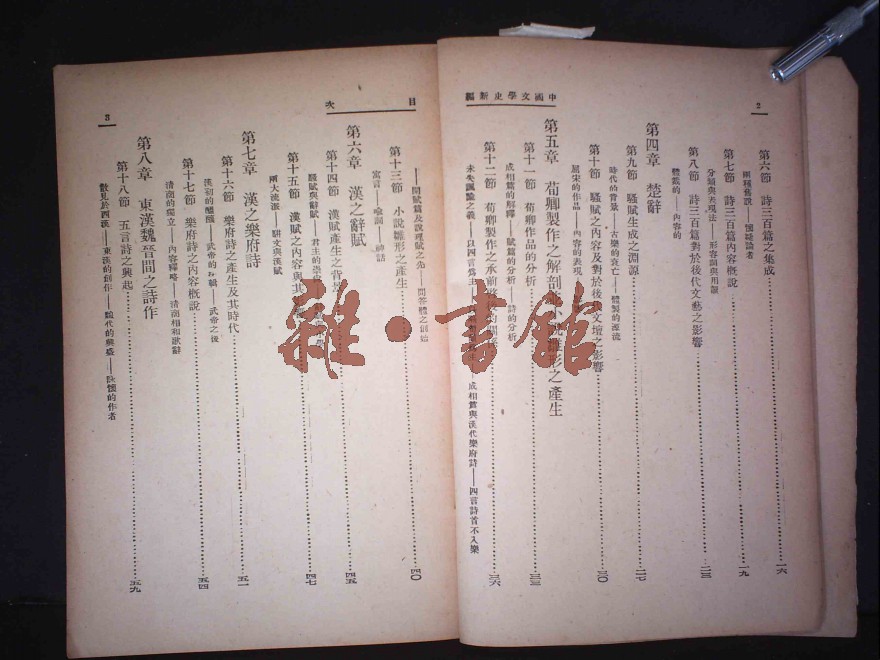 2
中國文學史新編
第六節 詩三百篇之集成……一六
兩種舊說——懷疑論者
第七節 詩三百篇內容概說……一九
分類與表現法——形容詞與用韻
第八節 詩三百篇對於後代文藝之影響……二三
體裁的——內容的
第四章 楚辭
第九節 騷賦生成之淵源……二七
時代的背景——古樂的衰亡——體製的源流
第十節 騷賦之內容及對於後代文壇之影響……三〇
屈宋的作品——內容的表現
第五章 荀卿製作之解剖 形之產生
第十一節 荀卿作品的分析……三三
成相篇的解釋——賦篇的分析——詩的分析
第十二節 荀卿製作之承前……三六
未失諷諭之義——以四言爲主 成相篇與漢代樂府詩——四言詩首不入樂
目次
3
——開賦篇及說理賦之先——問答體之創始
第十三節 小說雛形之產生……四〇
寓言——喩詞——神話
第六章 漢之辭賦
第十四節 漢賦產生之背景……四五
騷賦與辭賦——君主的崇
第十五節 漢賦之內容與其……四七
兩大流派——駢文與漢賦
第七章 漢之樂府詩
第十六節 樂府詩之產生及其時代……五一
漢初的醞釀——武帝的 輯——武帝之後
第十七節 樂府詩之內容概說……五四
清商的獨立——內容釋略——清商相和歌辭
第八章 東漢魏晉間之詩作
第十八節 五言詩之興起……五九
散見於西漢——東漢的創作——魏代的興盛——詠懷的作者
雜·書館